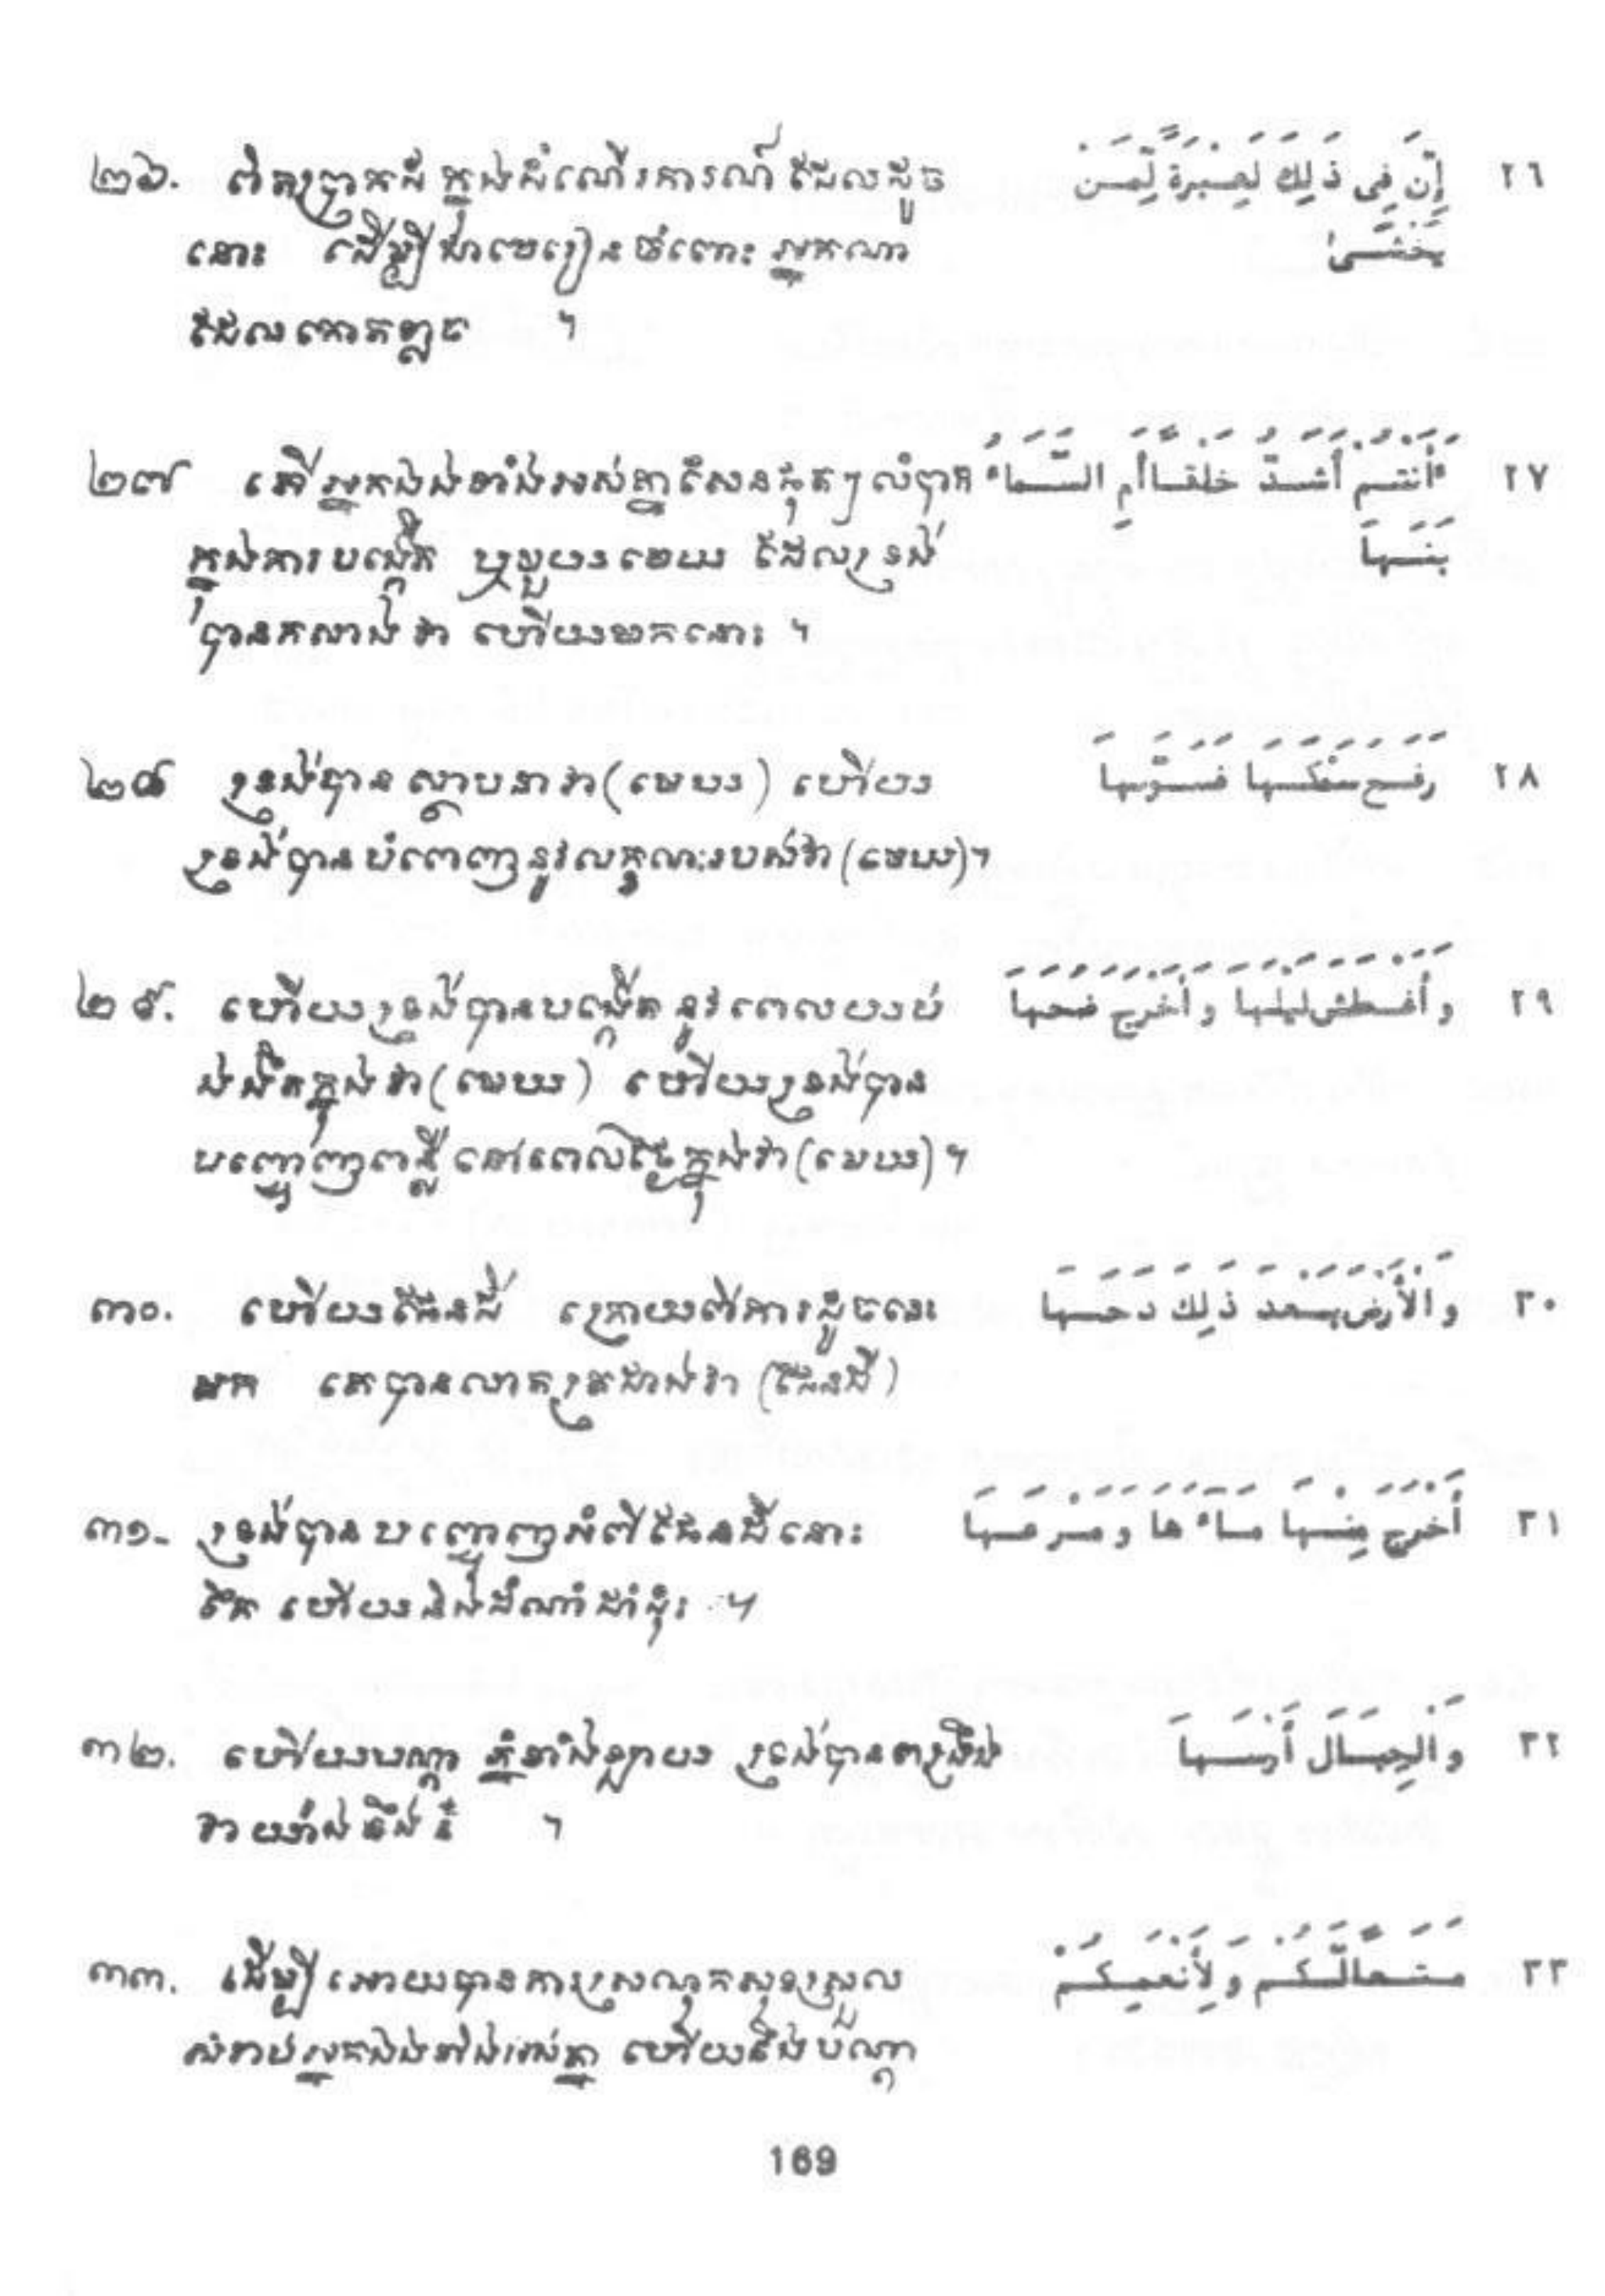 ២៦. ពិតប្រាកដ ក្នុងដំណើរការណ៍ ដែលដូច
នោះ ដើម្បីជាមេរៀនចំពោះ អ្នកណា
ដែលកោតខ្លាច ។
إِنَّ فِى ذَٰلِكَ لَعِبْرَةً لِّمَن ٢٦
يَخْشَىٰ
២៧ តើអ្នកឯងទាំងអស់គ្នាសែនដុតៗលំបាក
ក្នុងការបង្កើត ឬមួយមេឃ ដែលទ្រង់
បានកសាងវា ហើយមកនោះ ។
ءَأَنتُمْ أَشَدُّ خَلْقًا أَمِ السَّمَاءُ ٢٧
بَنَىٰهَا
២៨ ទ្រង់បានស្ថាបនាវា (មេឃ) ហើយ
ទ្រង់បានបំពេញនូវលក្ខណៈរបស់វា (មេឃ)។
رَفَعَ سَمْكَهَا فَسَوَّىٰهَا ٢٨
២៩. ហើយទ្រង់បានបង្កើតនូវពេលយប់
ងងឹតក្នុងវា (មេឃ) ហើយទ្រង់បាន
បញ្ចេញពន្លឺ នៅពេលថ្ងៃក្នុងវា (មេឃ)។
وَأَغْطَشَ لَيْلَهَا وَأَخْرَجَ ضُحَىٰهَا ٢٩
៣០. ហើយផែនដី ក្រោយពីការដូចនេះ
មក គេបានលាតត្រដាងវា (ផែនដី)
وَالْأَرْضَ بَعْدَ ذَٰلِكَ دَحَىٰهَا ٣٠
៣១- ទ្រង់បានបញ្ចេញអំពីផែនដីនោះ
ទឹក ហើយនិងដំណាំដាំដុះ ។
أَخْرَجَ مِنْهَا مَاءَهَا وَمَرْعَىٰهَا ٣١
៣២. ហើយបណ្តា ភ្នំទាំងឡាយ ទ្រង់បានពង្រឹង
វាយ៉ាងនឹងនំ ។
وَالْجِبَالَ أَرْسَىٰهَا ٣٢
៣៣. ដើម្បី អោយបានការស្រណុកសុខស្រួល
សំរាប់អ្នកឯងទាំងអស់គ្នា ហើយនឹងបណ្តា
مَتَٰعًا لَّكُمْ وَلِأَنْعَٰمِكُمْ ٣٣
169